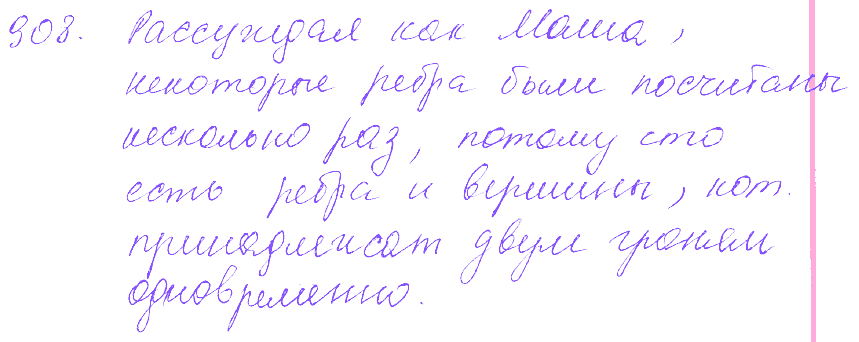 908. Рассуждая как Маша,
некоторые ребра были посчитаны
несколько раз, потому сто
есть ребра и вершины, кот.
принадлежат двум граням
одновременно.